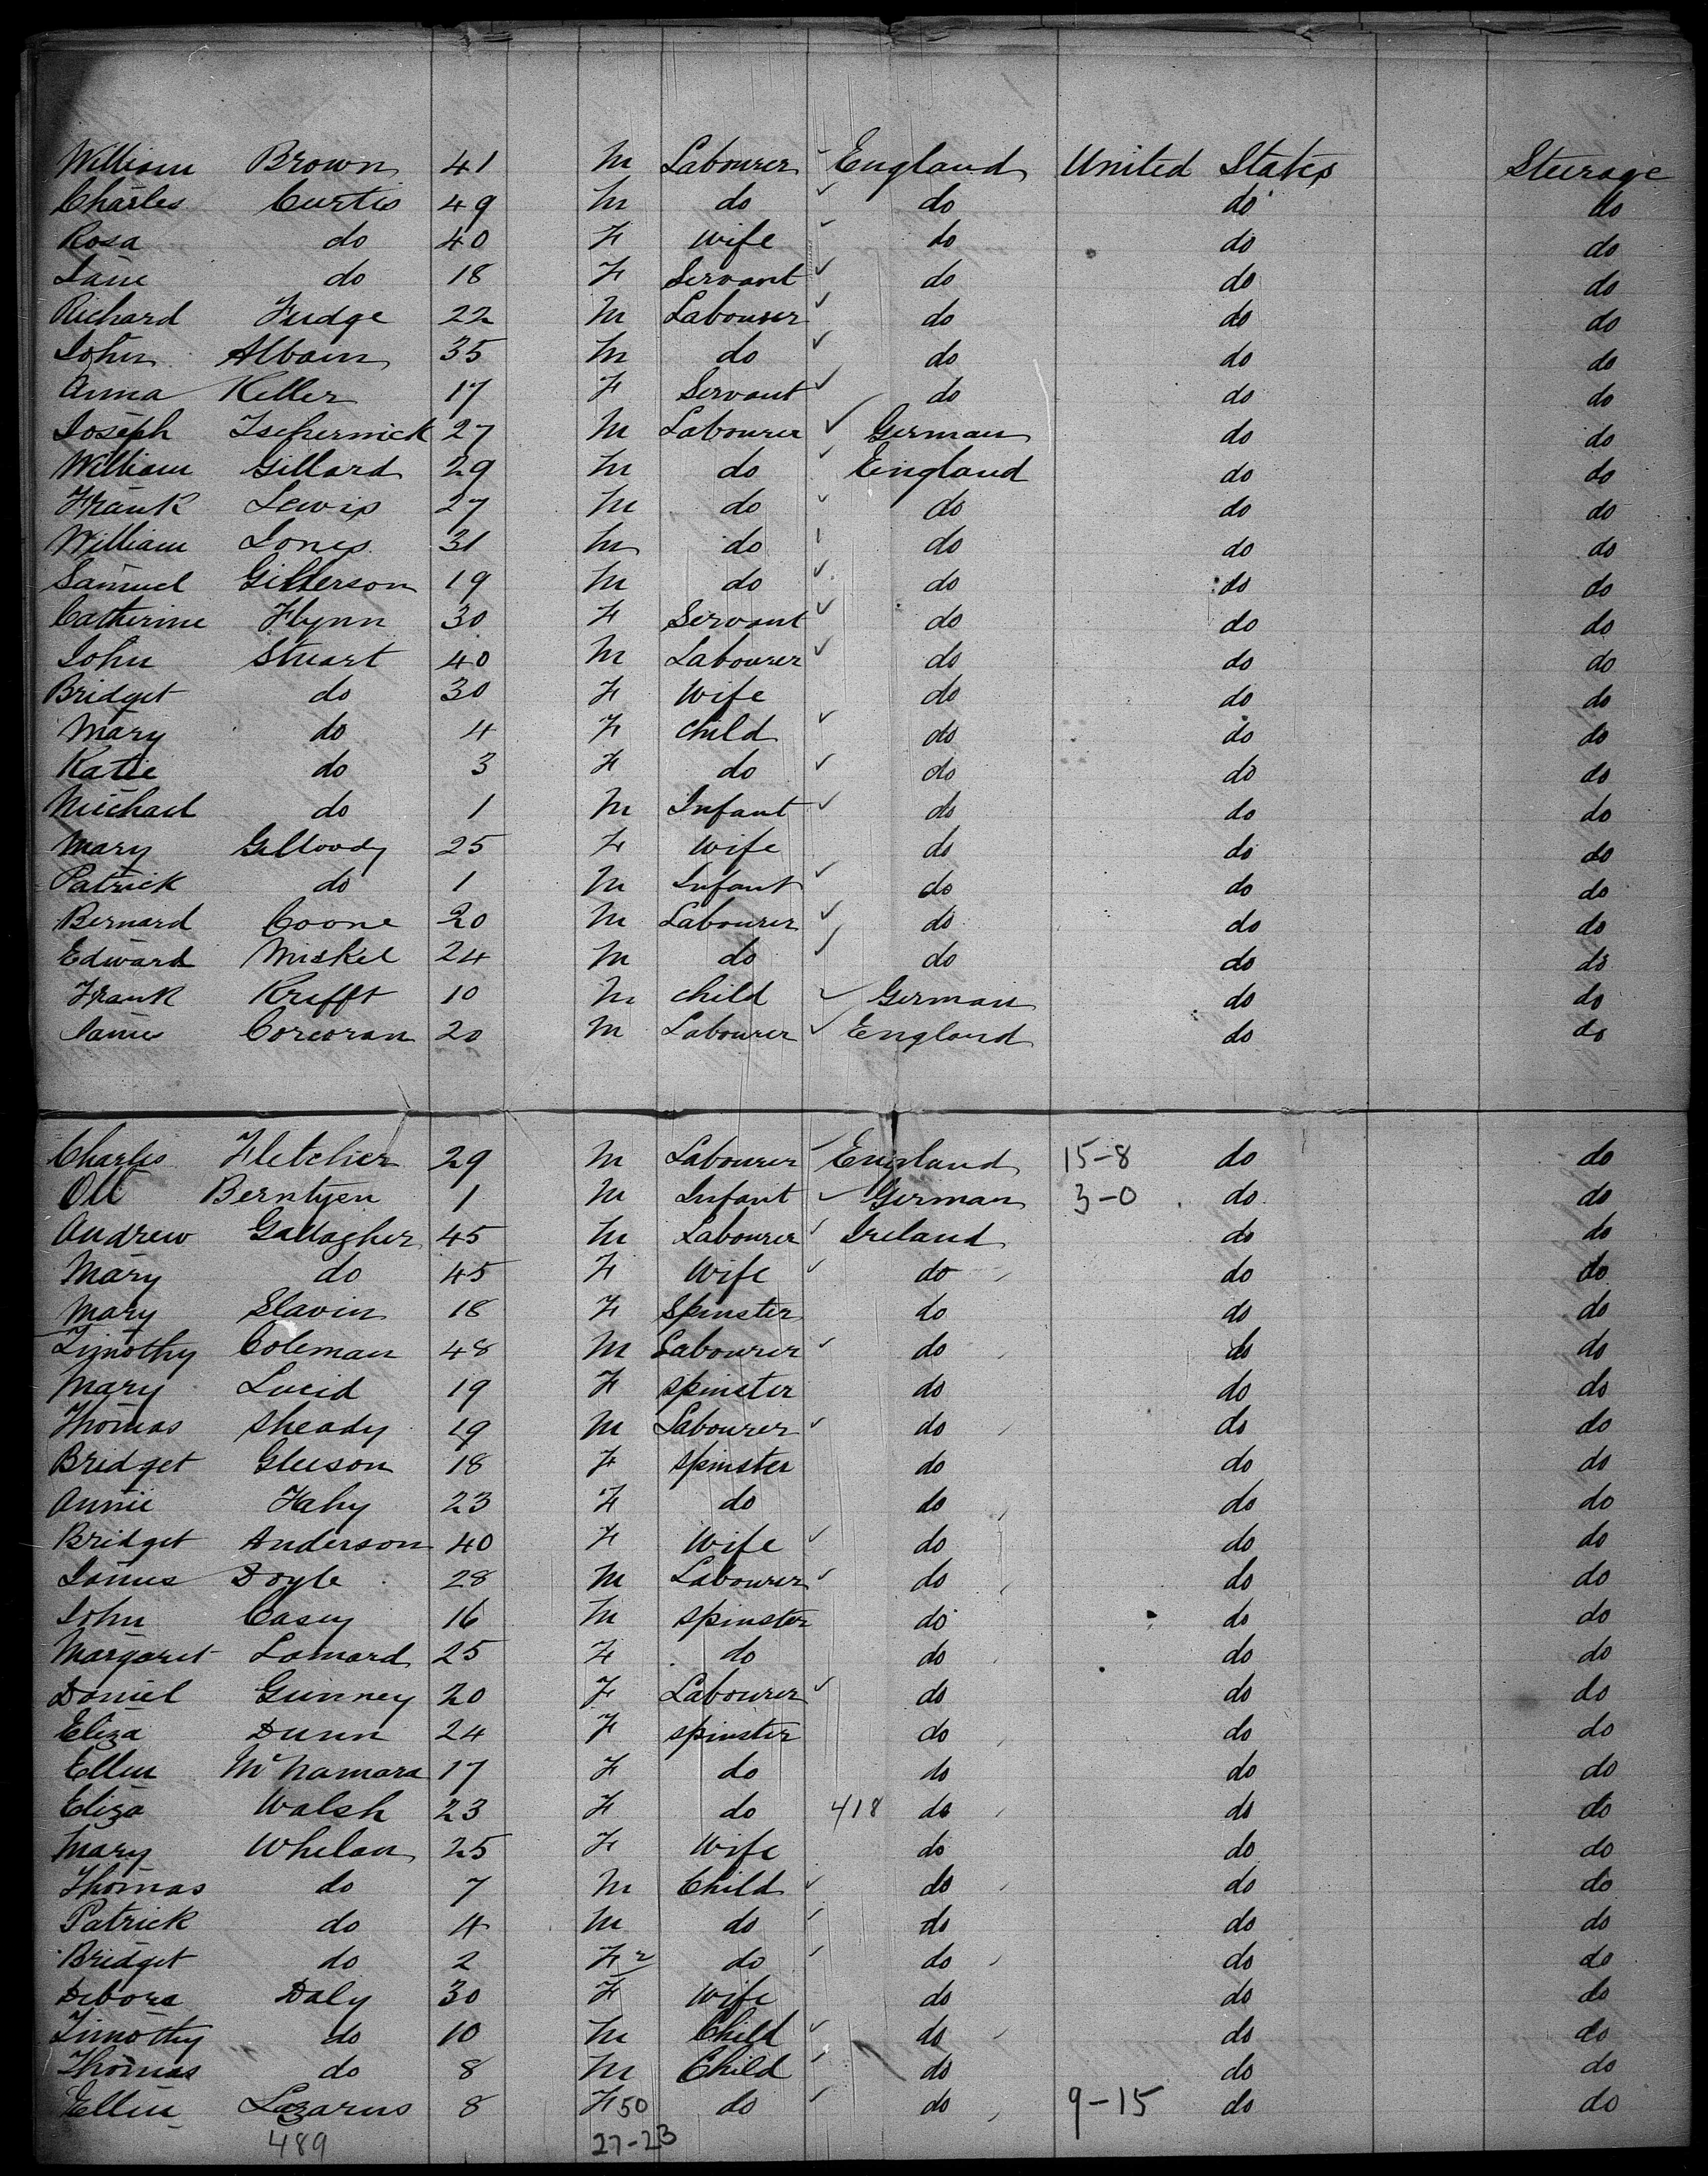 William Brown 41 M Labourer England United States Steerage
Charles Curtis 49 M do do do do
Rosa do 40 F Wife do do do
Jane do 18 F Servant do do do
Richard Fudge 22 M Labourer do do do
John Albain 35 M do do do do
Anna Keller 17 F Servant do do do
Joseph 27 M Labourer German do do
William Gillard 29 M do England do do
Frank Lewis 27 M do do do do
William Jones 31 M do do do do
Samuel Gilterson 19 M do do do do
Catherine Flynn 30 F Servant do do do
John Stuart 40 M Labourer do do do
Bridget do 30 F Wife do do do
Mary do 4 F child do do do
Katie do 3 F do do do do
Michael do 1 M Infant do do do
Mary 25 F Wife do do do
Patrick do 1 M Infant do do do
Bernard Coone 20 M Labourer do do do
Edward Miskel 24 M do do do do
Frank Krefft 10 M child German do do
James Corcoran 20 M Labourer England do do
Charles Fletcher 29 M Labourer England 15-8 do do
Berntsen 1 M Infant German 3-0 do do
Andrew Gallagher 45 M Labourer Ireland do do
Mary do 45 F Wife do do do
Mary Slavin 18 F Spinster do do do
Timothy Coleman 48 M Labourer do do do
Mary Lucid 19 F spinster do do do
Thomas Sheady 19 M Labourer do do do
Bridget Gleeson 18 F spinster do do do
Annie Fahy 23 F do do do do
Bridget Anderson 40 F Wife do do do
James Doyle 28 M Labourer do do do
John Casey 16 M spinster do do do
Margaret Lomard 25 F do do do do
Daniel Gunney 20 F Labourer do do do
Eliza Dunn 24 F spinster do do do
Ellen McNamara 17 F do do do do
Eliza Walsh 23 F do 418 do do do
Mary Whelan 25 F Wife do do do
Thomas do 7 M Child do do do
Patrick do 4 M do do do do
Bridget do 2 F 2 do do do do
Debora Daly 30 F Wife do do do
Timothy do 10 M Child do do do
Thomas do 8 M Child do do do
Ellen Lazarus 8 F 50 do do 9-15 do do
489 27-23